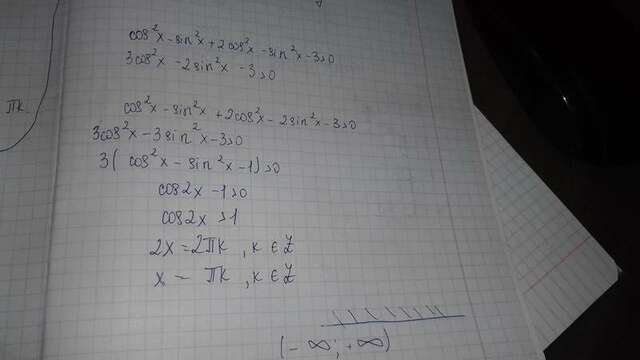 cos²x - sin²x + 2cos²x - sin²x - 3>0
3cos²x - 2sin²x - 3>0
πk
cos²x - sin²x + 2cos²x - 2sin²x - 3>0
3cos²x - 3sin²x - 3>0
3(cos²x - sin²x - 1)>0
cos2x - 1>0
cos2x >1
2x = 2πk , k ∈ Z
x = πk , k ∈ Z
(-∞; +∞)